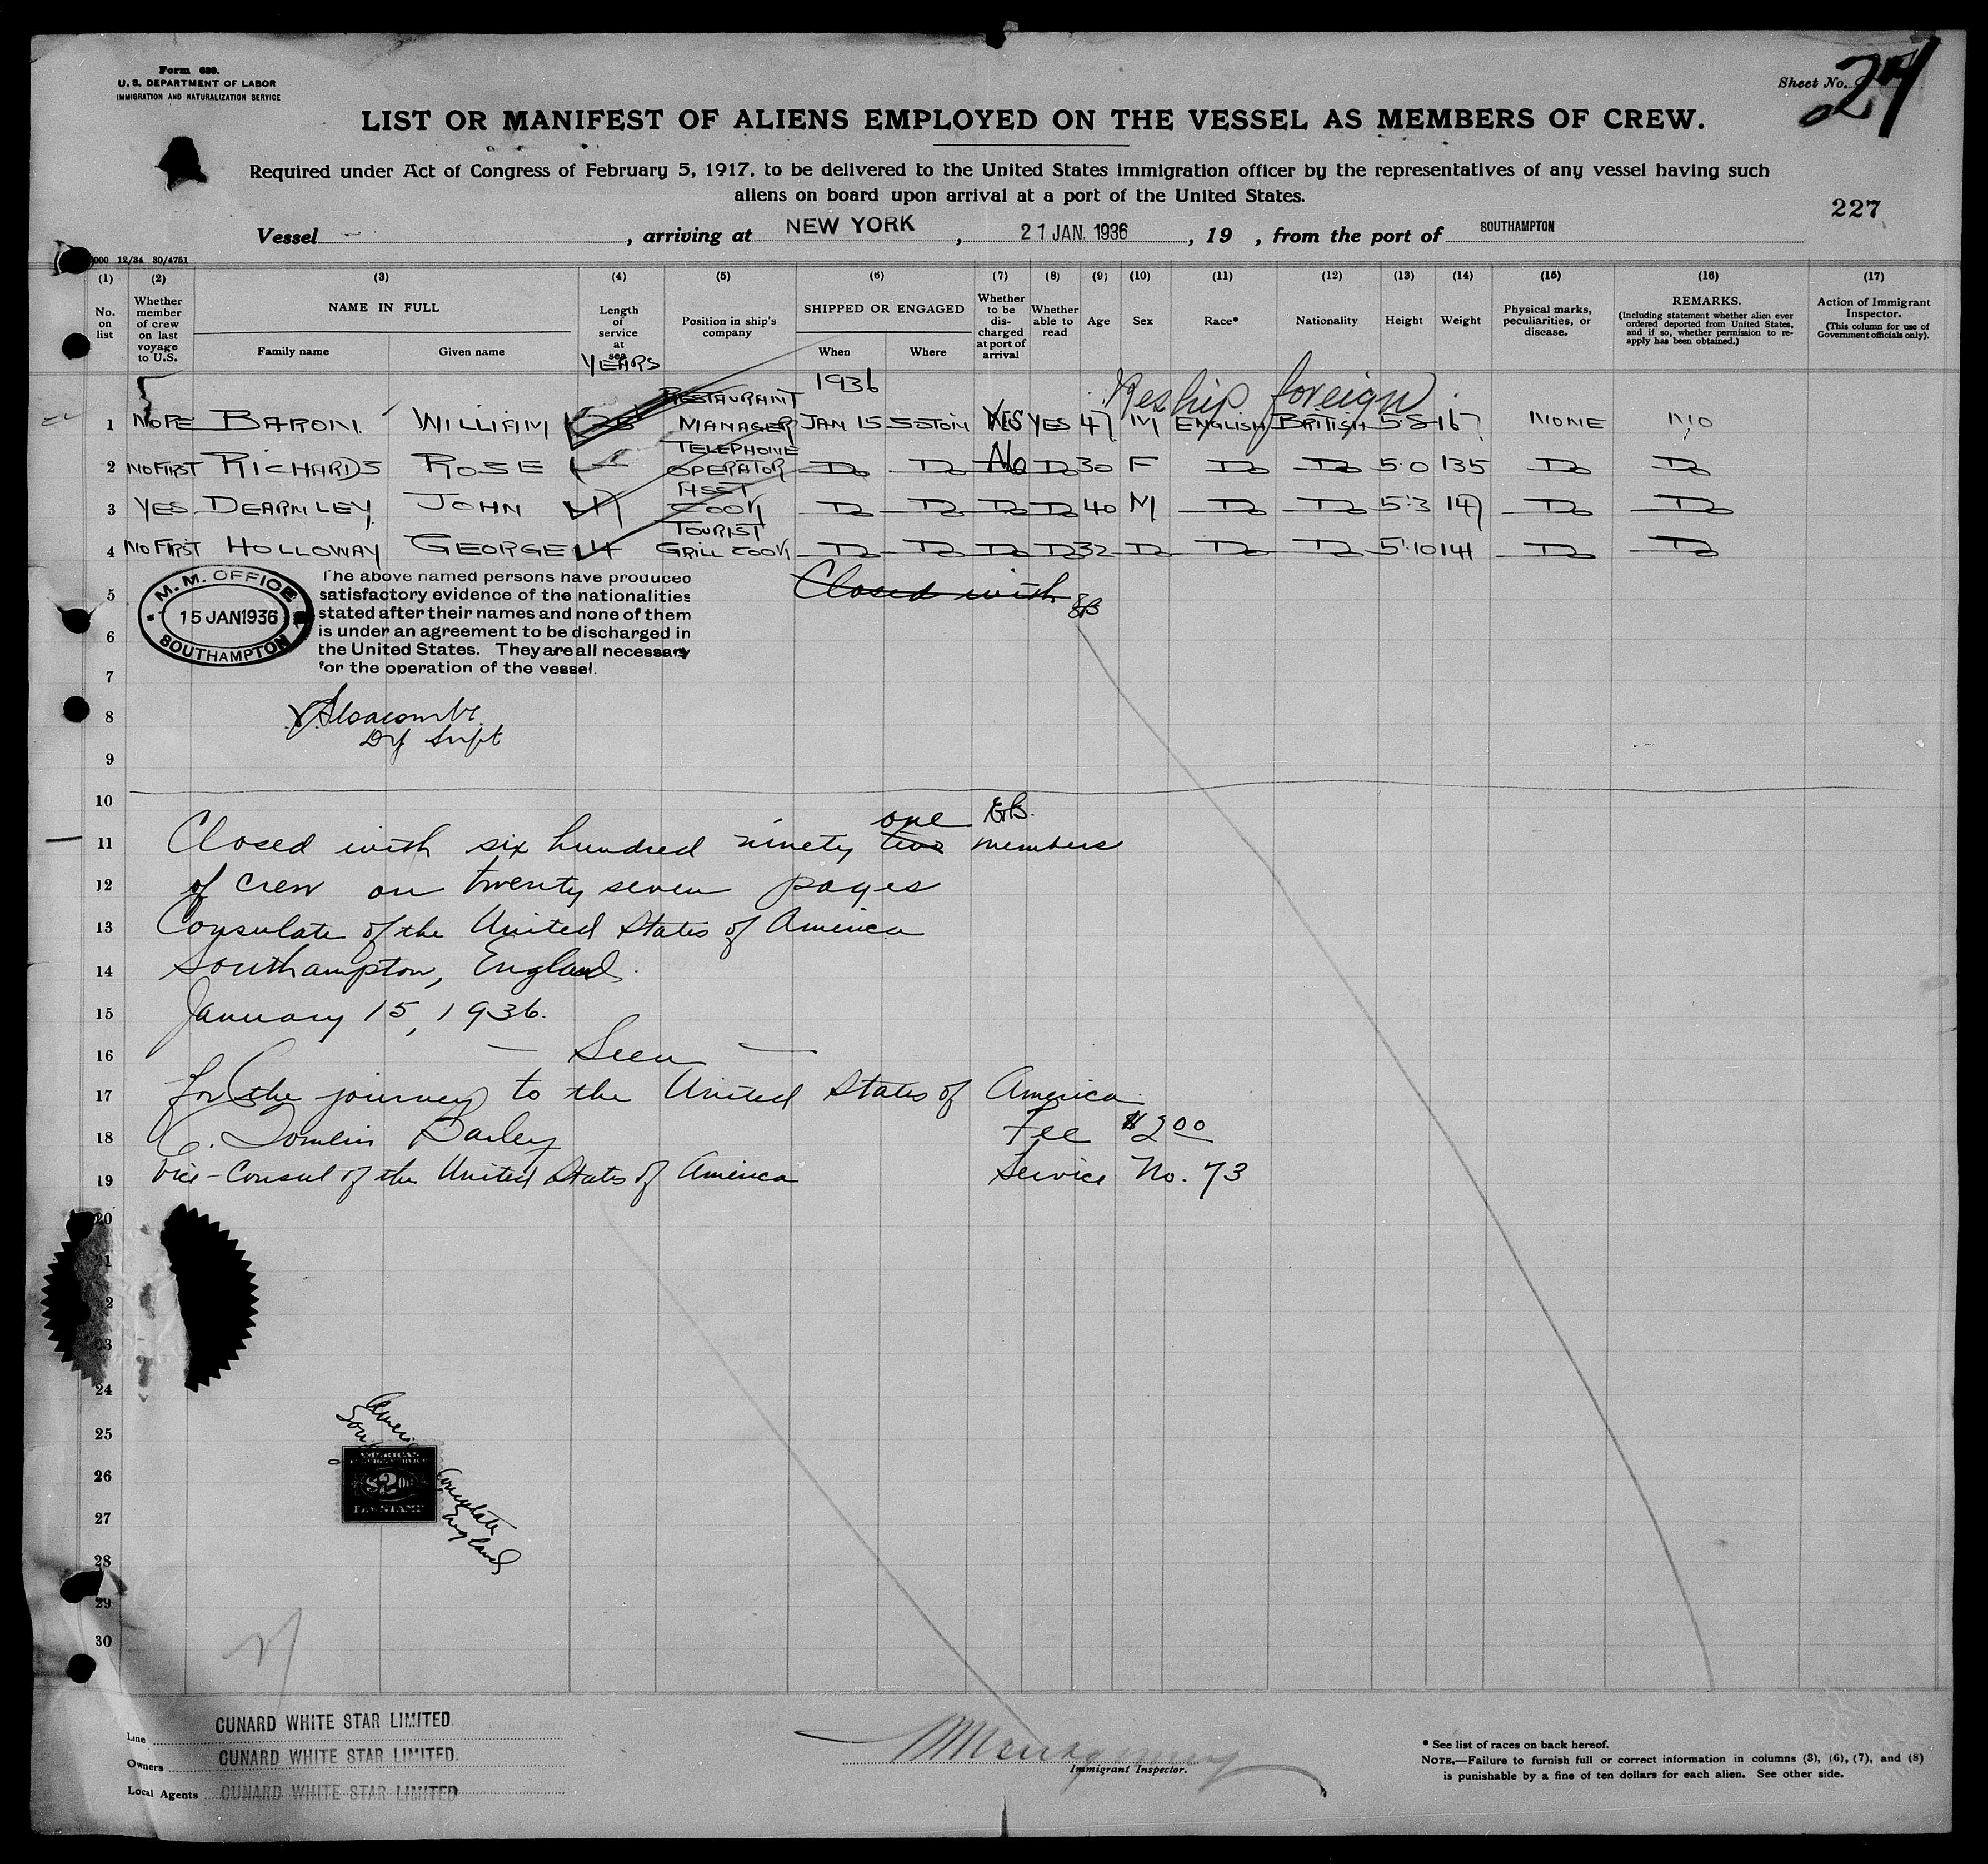 Form 680.
U. S. DEPARTMENT OF LABOR
IMMIGRATION AND NATURALIZATION SERVICE
Sheet No. 27
LIST OR MANIFEST OF ALIENS EMPLOYED ON THE VESSEL AS MEMBERS OF CREW.
Required under Act of Congress of February 5, 1917, to be delivered to the United States immigration officer by the representatives of any vessel having such
aliens on board upon arrival at a port of the United States.
227
Vessel , arriving at NEW YORK , 21 JAN. 1936 , 19 , from the port of SOUTHAMPTON
000 12/34 30/4751
(1) (2) (3) (4) (5) (6) (7) (8) (9) (10) (11) (12) (13) (14) (15) (16) (17)
No. on list
Whether member of crew on last voyage to U.S.
NAME IN FULL
Family name
Given name
Length of service at sea
YEARS
Position in ship's company
SHIPPED OR ENGAGED
When
Where
Whether to be discharged at port of arrival
Whether able to read
Age
Sex
Race*
Nationality
Height
Weight
Physical marks, peculiarities, or disease.
REMARKS.
(Including statement whether alien ever ordered deported from United States, and if so, whether permission to reapply has been obtained.)
Action of Immigrant Inspector.
(This column for use of Government officials only).
1936
Reship foreign
1 BARON WILLIAM RESTAURANT MANAGER JAN 15 S'STON YES YES 47 M ENGLISH BRITISH 5.8 167 NONE NO
2 NO FIRST RICHARDS ROSE TELEPHONE OPERATOR Do Do No Do 30 F Do Do 5.0 135 Do Do
3 YES DEARNLEY JOHN ASST COOK Do Do Do Do 40 M Do Do 5.3 147 Do Do
4 NO FIRST HOLLOWAY GEORGE 14 TOURIST GRILL COOK Do Do Do Do 32 Do Do Do 5.10 141 Do Do
M.M. OFFICE
15 JAN 1936
SOUTHAMPTON
The above named persons have produced
satisfactory evidence of the nationalities
stated after their names and none of them
is under an agreement to be discharged in
the United States. They are all necessary
for the operation of the vessel.
Closed with
5
6
7
8
Dy Supt
9
10
one
11 Closed with six hundred ninety two members
12 of crew on twenty seven pages
13 Consulate of the United States of America
14 Southampton, England.
15 January 15, 1936.
16 — Seen —
17 for the journey to the United States of America
18 C. Tomlin Bailey Fee $2.00
19 Vice-Consul of the United States of America Service No. 73
20
24
25
26
27
28
29
30
American Consulate
England
AMERICAN
$2.00
FEE STAMP
Line CUNARD WHITE STAR LIMITED.
Owners CUNARD WHITE STAR LIMITED.
Local Agents CUNARD WHITE STAR LIMITED
Immigrant Inspector.
* See list of races on back hereof.
NOTE.—Failure to furnish full or correct information in columns (3), (6), (7), and (8)
is punishable by a fine of ten dollars for each alien. See other side.